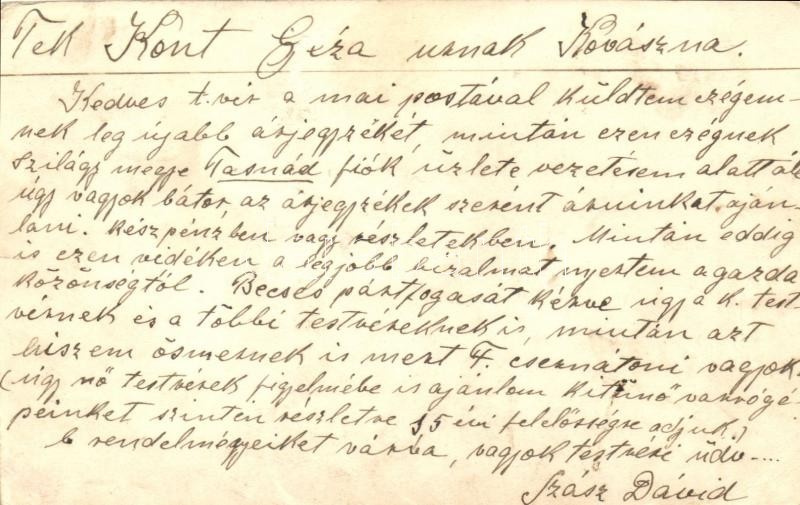 Tek Kont Géza urnak Kovászna.
Kedves t.vér a mai postával küldtem czégem-
nek leg újabb árjegyzékét, mintán ezen czégnek
Szilágy megye Tasnád fiók üzlete vezetésem alatt áll
úgy vagyok bátor az árjegyzékek szerént áruinkat aján-
lani. készpénzben vagy részletekben. Mintán eddig
is ezen vidéken a legjobb bizalmat nyertem a gazda
közönségtől. Becses pártfogását kérve úgy a k. test-
vérnek és a többi testvéreknek is, mintán azt
hiszem ösmernek is mert F. csernátoni vagyok.
(úgy nő testvérek figyelmébe is ajánlom kitünő varrógé-
peinket szintén részletre 15 évi felelősségre adjuk.)
b rendelményeiket várva, vagyok testvéri üdv-....
Szász Dávid